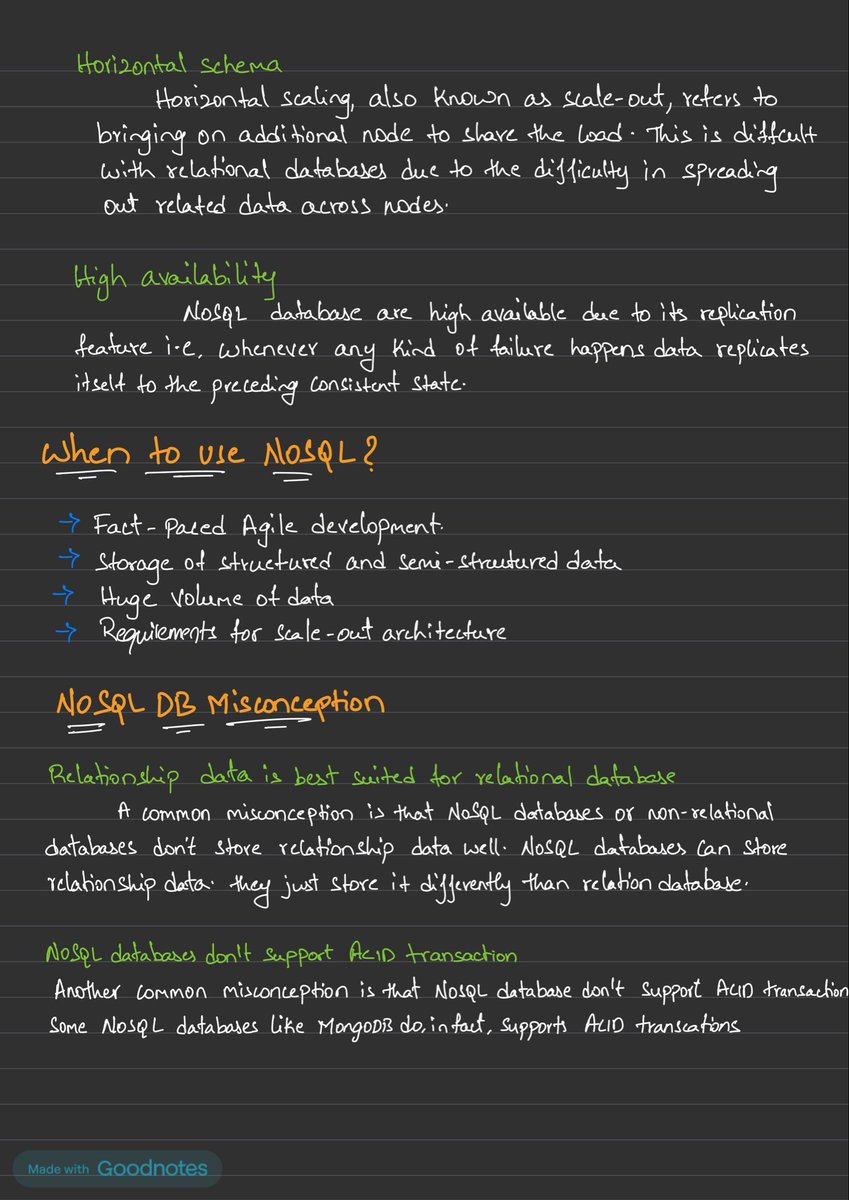 Horizontal schema
Horizontal scaling, also known as scale-out, refers to
bringing on additional node to share the load. This is diffcult
with relational databases due to the difficulty in spreading
out related data across nodes.
High availability
NoSQL database are high available due to its replication
feature i.e, whenever any kind of failure happens data replicates
itself to the preceding consistent state.
When to use NoSQL?
→ Fact-Paced Agile development.
→ Storage of structured and semi-structured data
→ Huge Volume of data
→ Requirements for scale-out architecture
NoSQL DB Misconception
Relationship data is best suited for relational database
A common misconception is that NoSQL databases or non-relational
databases don't store relationship data well. NoSQL databases can store
relationship data. they just store it differently than relation database.
NoSQL databases don't support ACID transaction
Another common misconception is that NoSQL database don't support ACID transaction
Some NoSQL databases like MongoDB do, in fact, supports ACID transcations
Made with Goodnotes